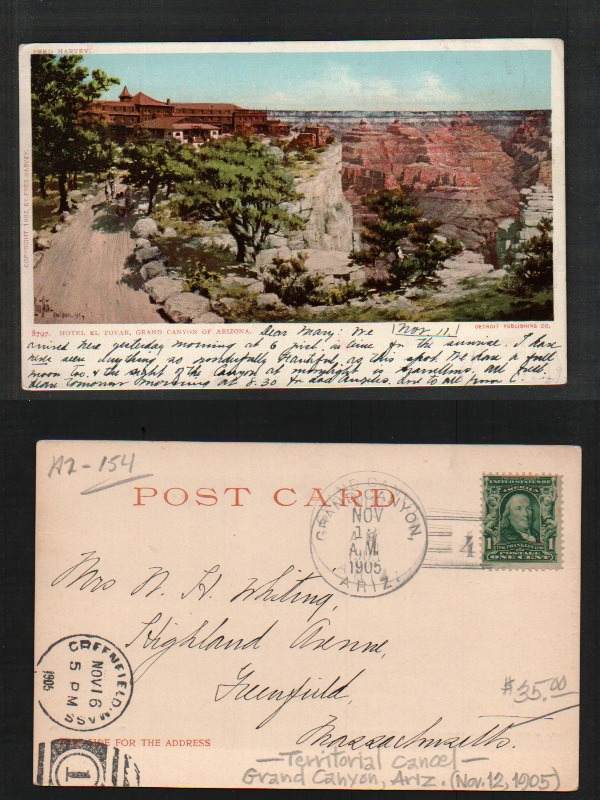 FRED HARVEY.
COPYRIGHT 1902, BY FRED HARVEY.
5797. HOTEL EL TOVAR, GRAND CANYON OF ARIZONA.
DETROIT PUBLISHING CO.
Dear Mary: We Nov 11
arrived here yesterday morning at 6 just in time for the sunrise. I have
never seen anything so wonderfully beautiful, as this spot. We have a full
moon too. & the sight of the Canyon at moonlight is marvellous. All well.
leave tomorrow morning at 8.30 for Los Angeles. Love to all from
AZ-154
POST CARD
GRAND CANYON,
NOV
A.M.
1905
ARIZ.
4
UNITED STATES OF
AMERICA
1 1
POSTAGE
ONE CENT
Mrs W. H. Whiting,
Highland Avenue,
Greenfield,
Massachusetts.
GREENFIELD, MASS
NOV 16
5 PM
1905
$35.00
FOR THE ADDRESS
1
—Territorial Cancel—
Grand Canyon, Ariz. (Nov. 12, 1905)